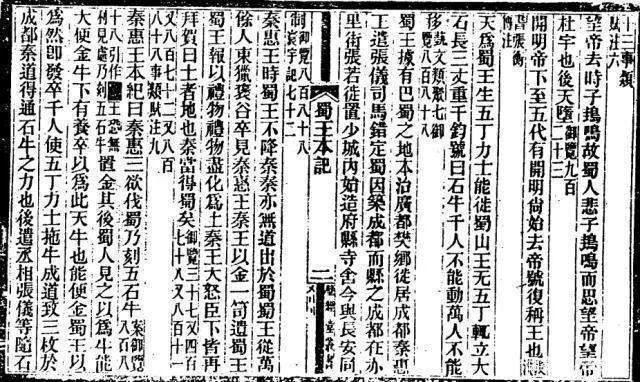 十三事類賦注六
望帝去時子搗鳴故蜀人悲子搗鳴而思望帝望帝
杜宇也後天墮御覽九百二十三
開明帝下至五代有開明尚始去帝號復稱王也
書張衡傳注
天爲蜀王生五丁力士能徙蜀山王无五丁輒立大
石長三丈重千鈞號曰石牛千人不能動萬人不能
移藝文類聚七御覽八百八十八
蜀王據有巴蜀之地本治廣都樊鄉徙居成都秦惠
王遣張儀司馬錯定蜀因築成都而縣之成都在赤
里街張若徙置少城內始造府縣寺舍今與長安同
制御覽八百八十八寰宇記七十二
蜀王本記
二
秦惠王時蜀王不降秦秦亦無道出於蜀蜀王從萬
餘人東獵褒谷卒見秦惠王秦王以金一笥遺蜀王
蜀王報以禮物禮物盡化爲土秦王大怒臣下皆再
拜賀曰土者地也秦當得蜀矣御覽三十七又四百七十八又八百一十一
又八百七十二又八百八十八事類賦注九
秦惠王本紀曰秦惠王欲伐蜀乃刻五石牛案御覽八百八
十八引作乃刻五石牛置金其後蜀人見之以爲牛能
大便金牛下有養卒以爲此天牛也能便金蜀王以
爲然即發卒千人使五丁力士拖牛成道致三枚於
成都秦道得通石牛之力也後遣丞相張儀等隨石